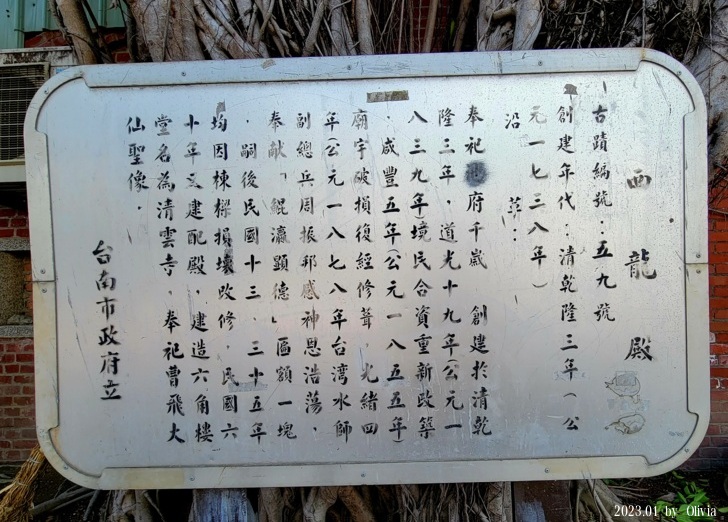 西龍殿
古蹟編號：五九號
創建年代：清乾隆三年（公
元一七三八年）
沿革：
奉祀府千歲　創建於清乾
隆三年，道光十九年（公元一
八三九年）境民合資重新改築
，咸豐五年（公元一八五五年）
廟宇破損復經修葺，光緒四
年（公元一八七八年台湾水師
副總兵周振邦感神恩浩蕩，
奉献「鯤瀛顯德」匾額一塊
，嗣後民國十三、三十五年
均因棟樑損壞改修，民國六
十年建配殿，建造六角樓
堂名為清雲寺，奉祀曹飛大
仙聖像。
台南市政府立
2023.01 by Olivia